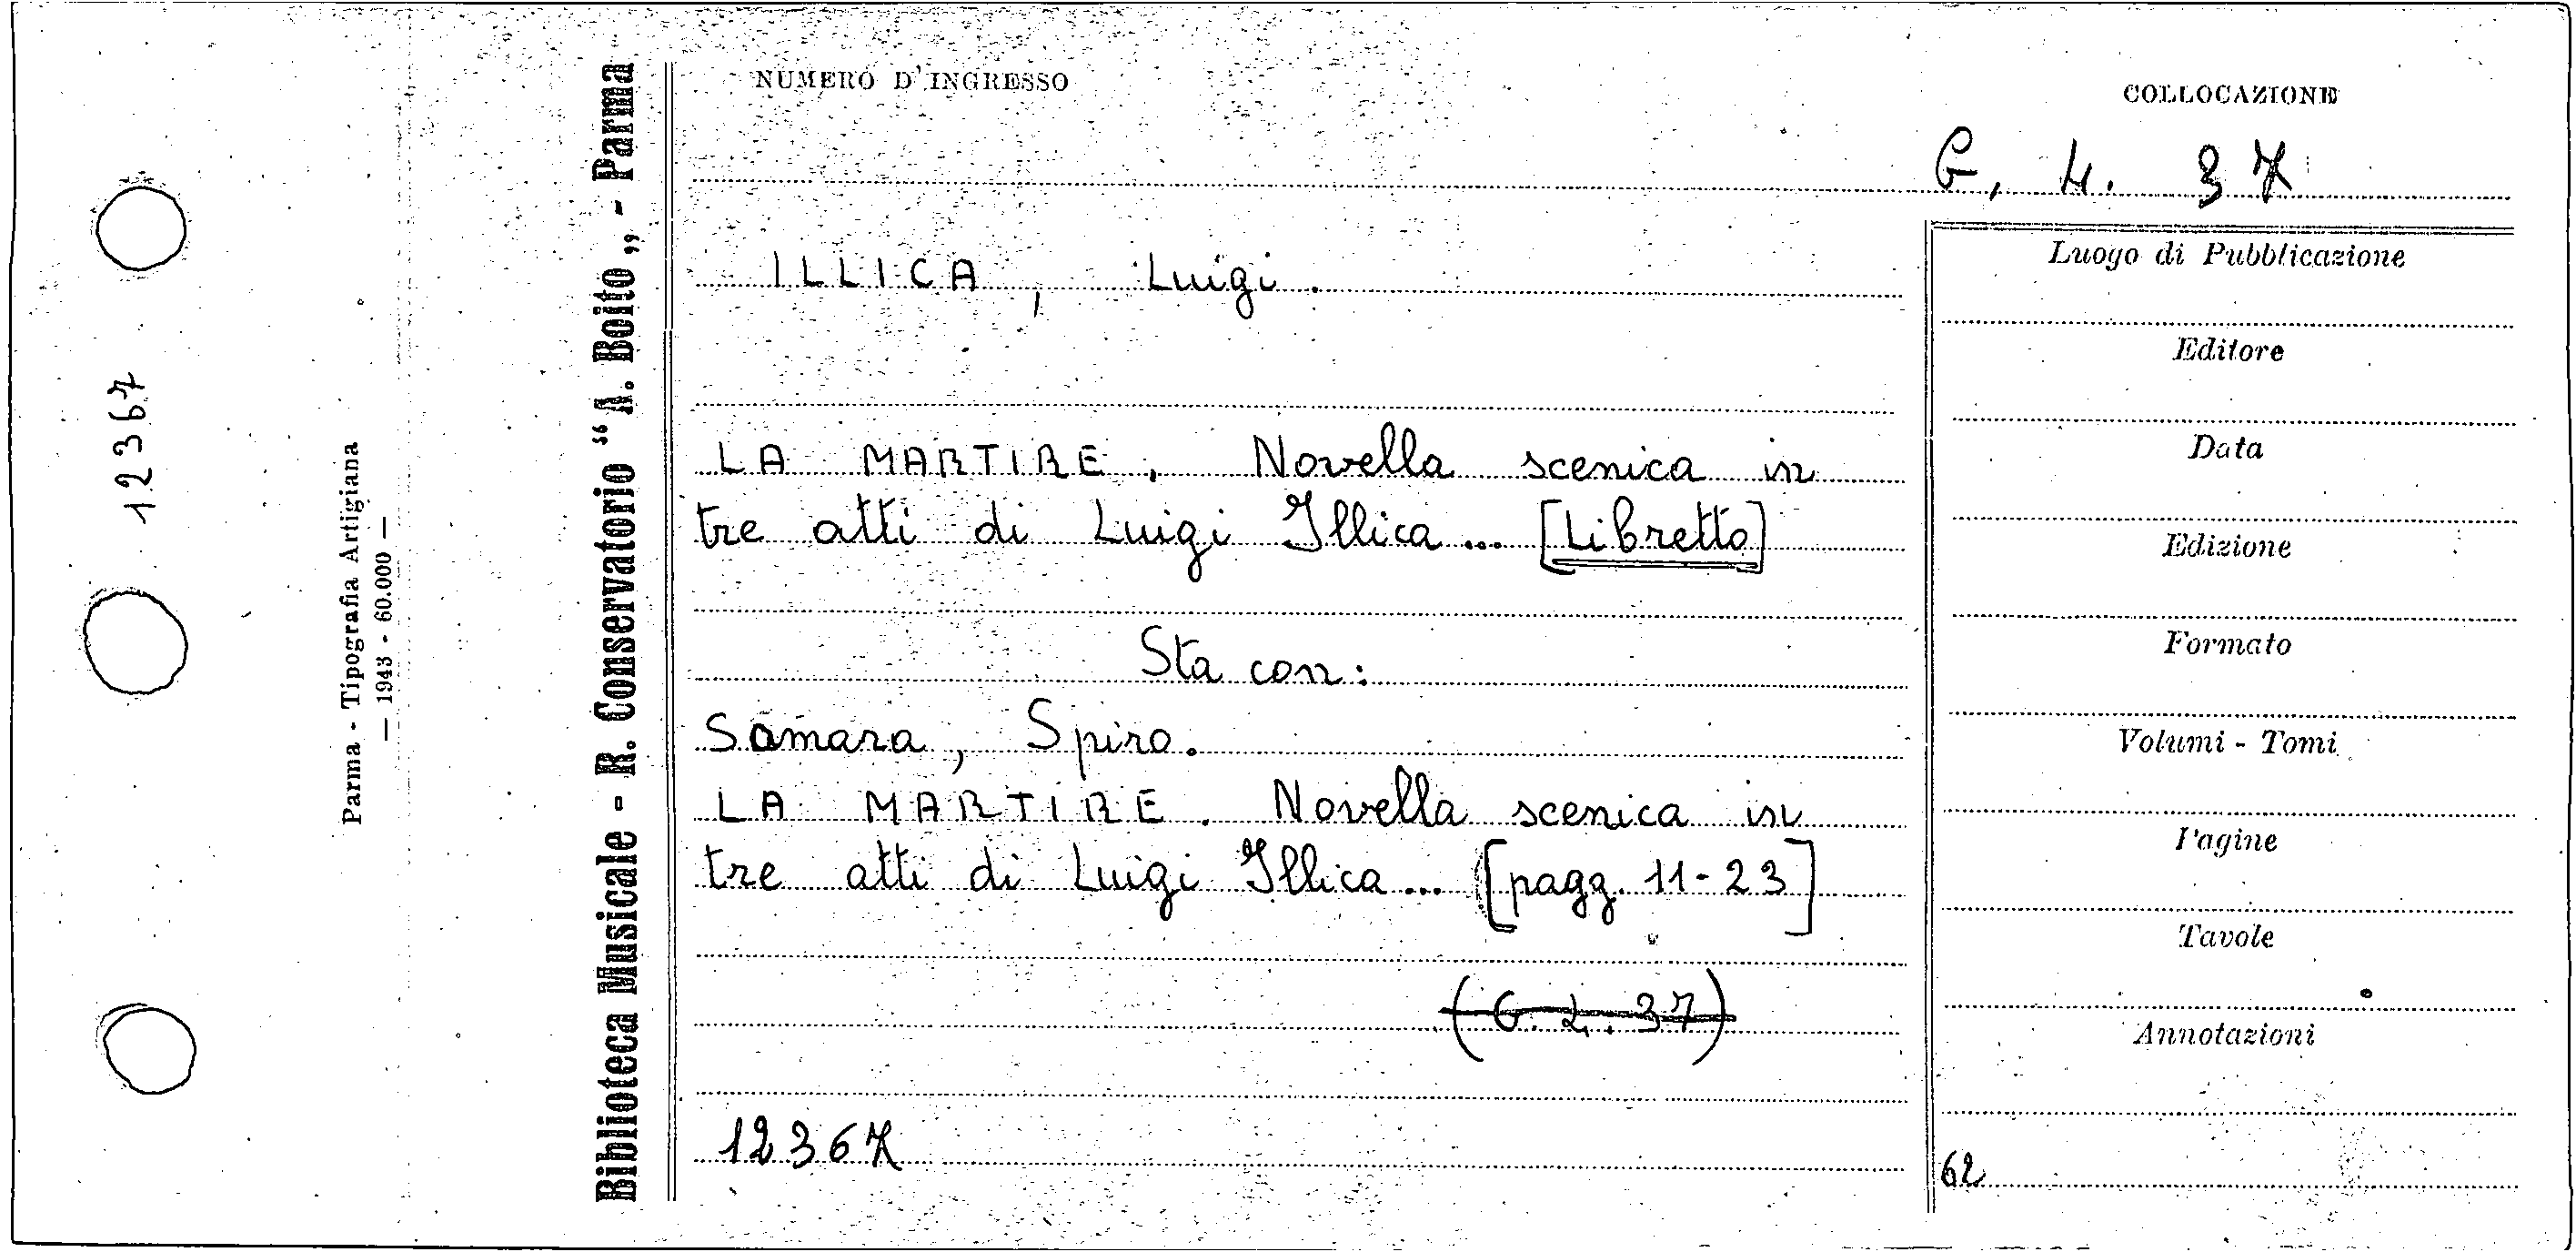 12367
Parma - Tipografia Artigiana
— 1943 - 60.000 —
Biblioteca Musicale - R. Conservatorio “A. Boito„ - Parma
NUMERO D'INGRESSO
COLLOCAZIONE
G. 4. 37
ILLICA, Luigi.
LA MARTIRE. Novella scenica in
tre atti di Luigi Illica ... [Libretto]
Sta con:
Samara, Spiro.
LA MARTIRE. Novella scenica in
tre atti di Luigi Illica ... [pagg. 11-23]
(G. 2. 37)
12367
Luogo di Pubblicazione
Editore
Data
Edizione
Formato
Volumi - Tomi
Pagine
Tavole
Annotazioni
62